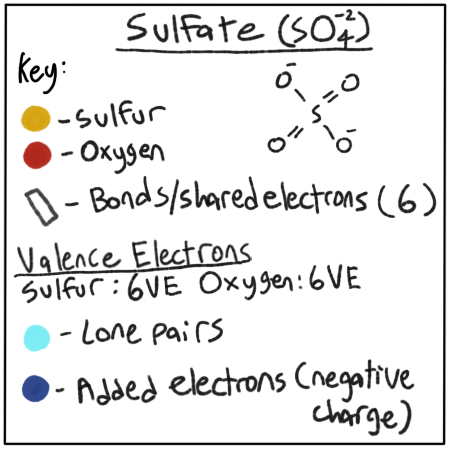 Sulfate (SO₄⁻²)
Key:
O⁻ O
S
O O⁻
- sulfur
- Oxygen
- Bonds/shared electrons (6)
Valence Electrons
Sulfur: 6VE Oxygen: 6VE
- Lone pairs
- Added electrons (negative
charge)